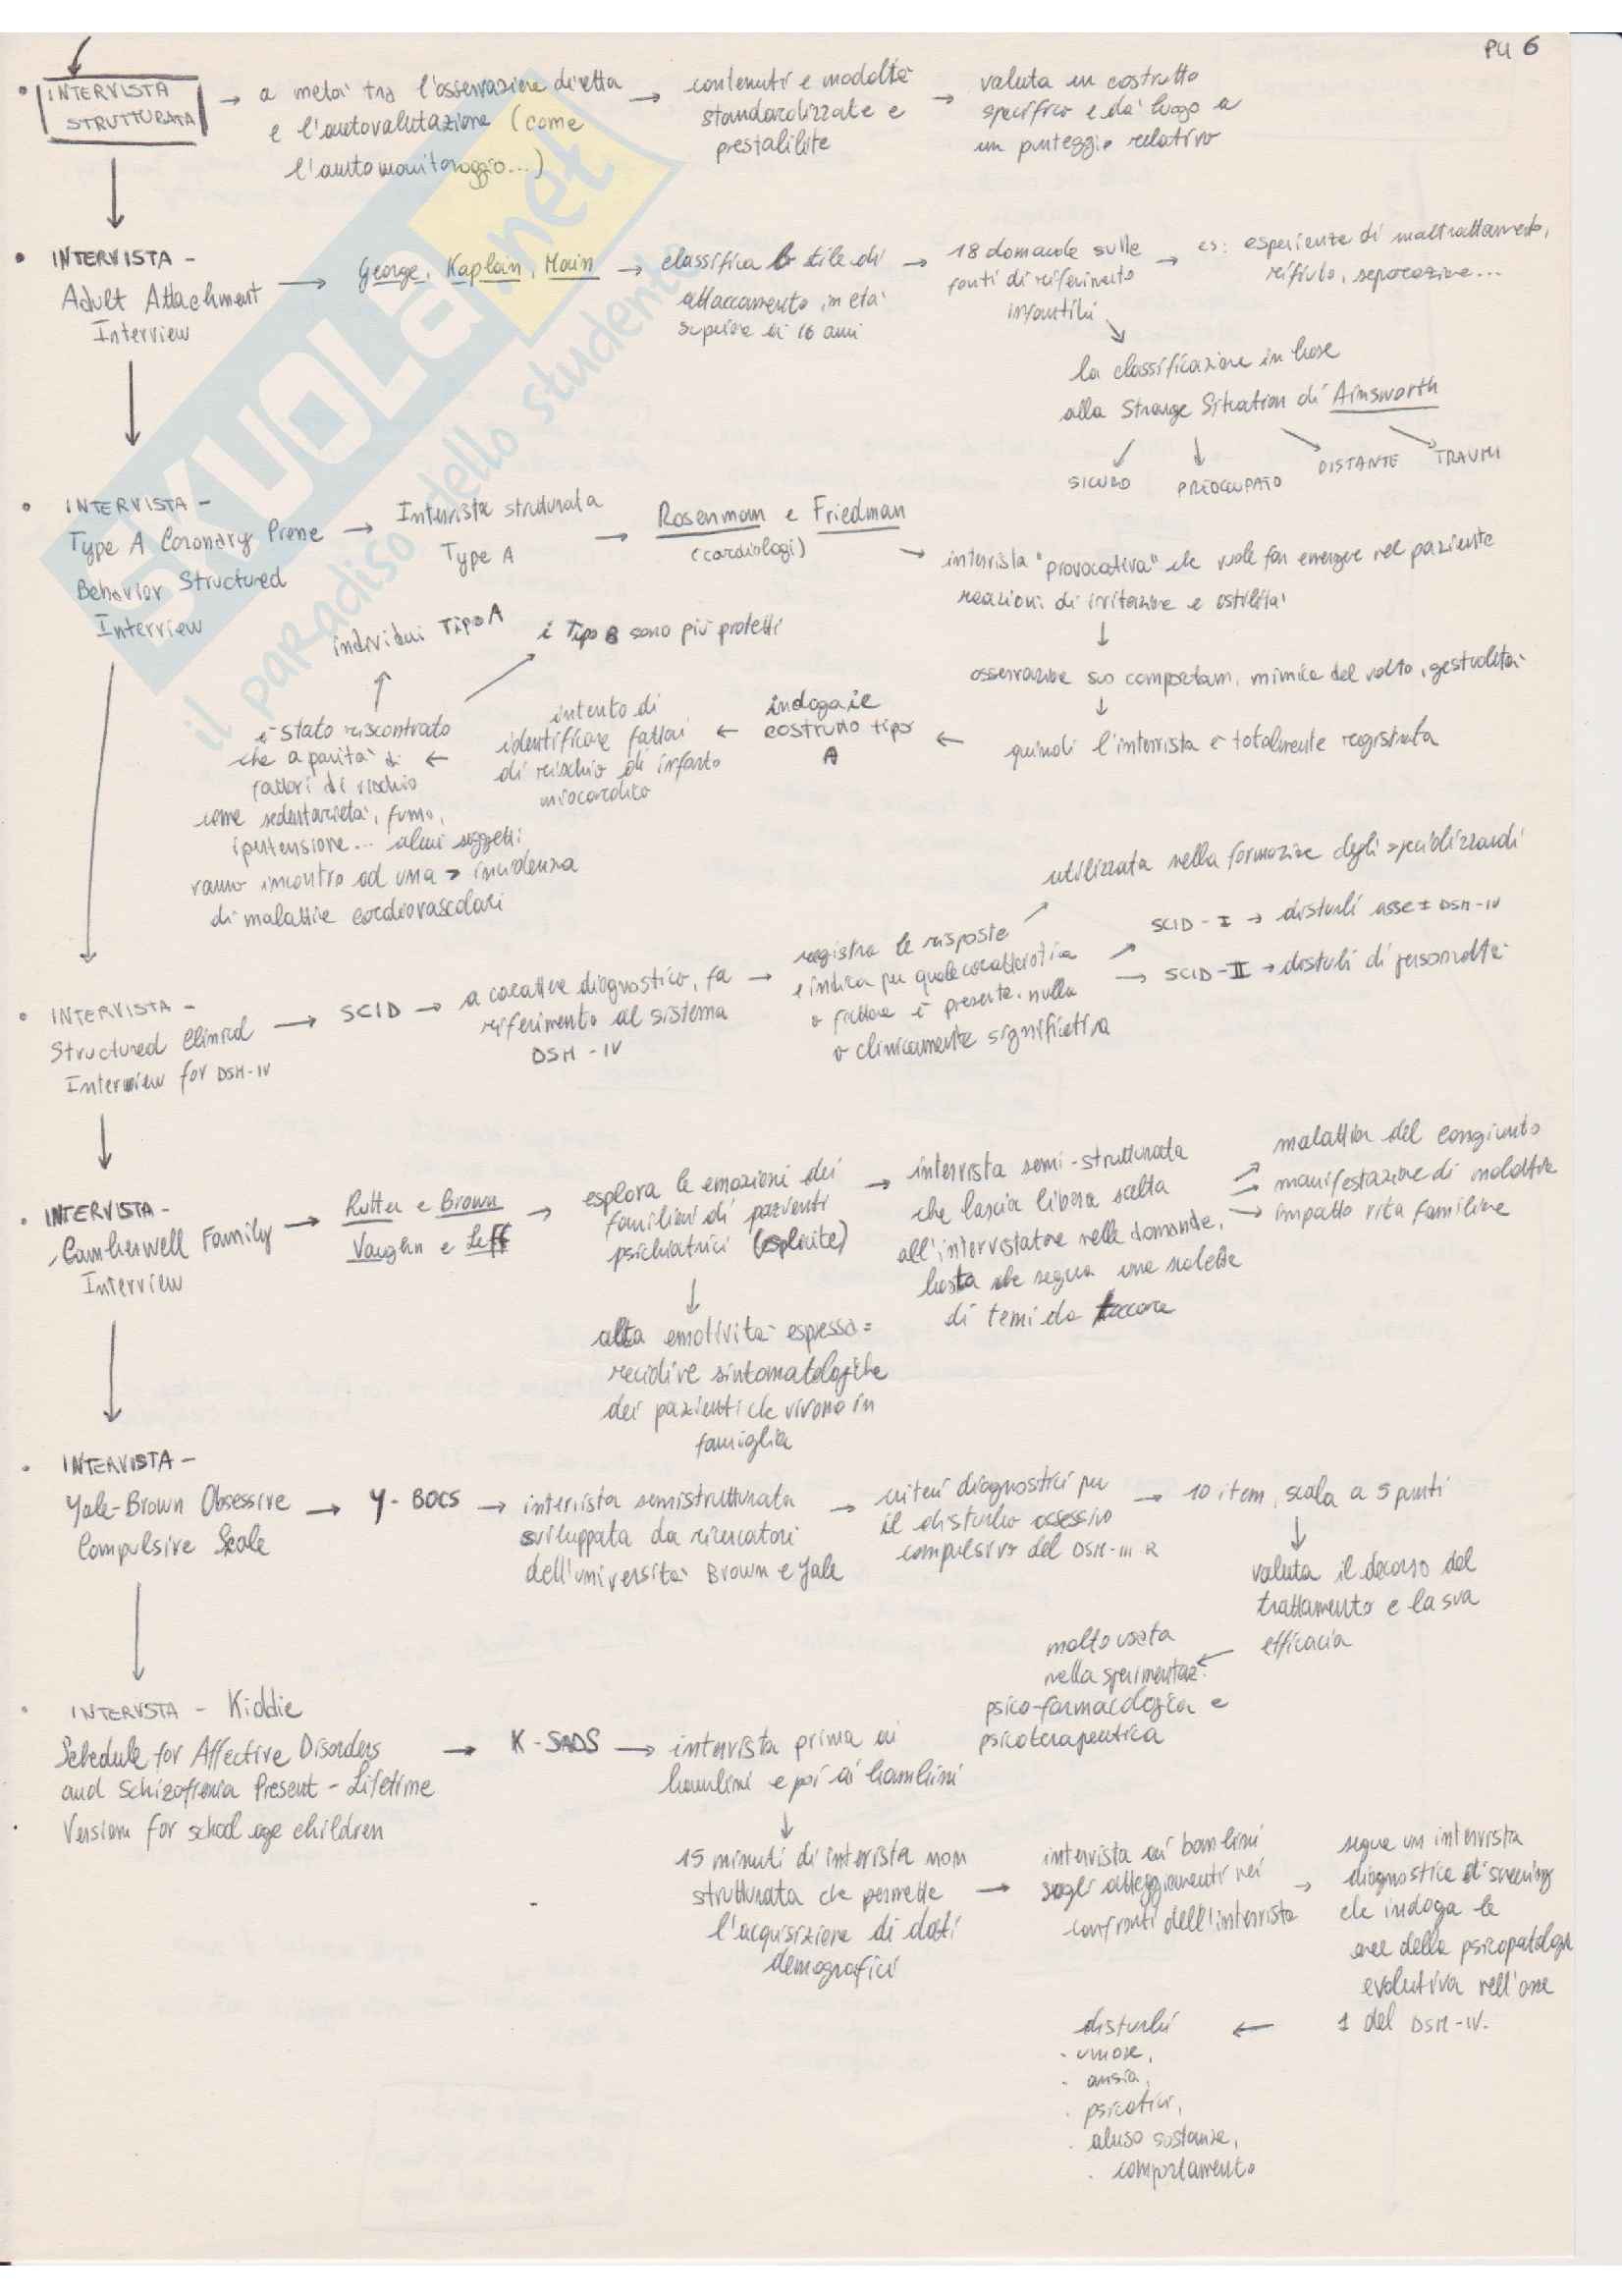 PU 6
INTERVISTA
STRUTTURATA
a metà tra l'osservazione diretta
e l'autovalutazione (come
l'automonitoraggio...)
contenuti e modalità
standardizzate e
prestabilite
valuta un costrutto
specifico e dà luogo a
un punteggio relativo
INTERVISTA -
Adult Attachment
Interview
George, Kaplain, Main
classifica lo stile di
attaccamento in età
superiore ai 16 anni
18 domande sulle
fonti di riferimento
infantili
es: esperienze di maltrattamento,
rifiuto, separazione...
la classificazione in base
alla Strange Situation di Ainsworth
SICURO
PREOCCUPATO
DISTANTE
TRAUMI
INTERVISTA -
Type A Coronary Prone
Behavior Structured
Interview
Intervista strutturata
Type A
Rosenman e Friedman
(cardiologi)
intervista "provocativa" che vuole far emergere nel paziente
reazioni di irritazione e ostilità
osservazione suo comportam, mimica del volto, gestualità
quindi l'intervista è totalmente registrata
indagare
costrutto tipo
A
intento di
identificare fattori
di rischio di infarto
miocardico
è stato riscontrato
che a parità di
fattori di rischio
come sedentarietà, fumo,
ipertensione... alcuni soggetti
vanno incontro ad una > incidenza
di malattie cardiovascolari
individui Tipo A
i Tipo B sono più protetti
INTERVISTA -
Structured Clinical
Interview for DSM-IV
SCID
a carattere diagnostico, fa
riferimento al sistema
DSM-IV
registra le risposte
e indica per quale caratteristica
o fattore è presente, nulla
o clinicamente significativa
utilizzata nella formazione degli specializzandi
SCID-I → disturbi asse I DSM-IV
SCID-II → disturbi di personalità
INTERVISTA -
Camberwell Family
Interview
Rutter e Brown
Vaughn e Leff
esplora le emozioni dei
familiari di pazienti
psichiatrici (esplicite)
alta emotività espressa =
recidive sintomatologiche
dei pazienti che vivono in
famiglia
intervista semi-strutturata
che lascia libera scelta
all'intervistatore nelle domande,
basta che segua una scaletta
di temi da toccare
malattia del congiunto
manifestazione di malattia
impatto vita familiare
INTERVISTA -
Yale-Brown Obsessive
Compulsive Scale
Y-BOCS
intervista semistrutturata
sviluppata da ricercatori
dell'università Brown e Yale
criteri diagnostici per
il disturbo ossessivo
compulsivo del DSM-III R
10 item, scala a 5 punti
valuta il decorso del
trattamento e la sua
efficacia
molto usata
nella sperimentaz.
psico-farmacologica e
psicoterapeutica
INTERVISTA - Kiddie
Schedule for Affective Disorders
and Schizofrenia Present-Lifetime
Version for school age children
K-SADS
intervista prima ai
bambini e poi ai bambini
15 minuti di intervista non
strutturata che permette
l'acquisizione di dati
demografici
intervista ai bambini
sugli atteggiamenti nei
confronti dell'intervista
segue un intervista
diagnostica di screening
che indaga le
aree della psicopatologia
evolutiva nell'asse
1 del DSM-IV.
disturbi
· umore,
· ansia,
· psicotici,
· abuso sostanze,
· comportamento
SKUOLA.net
il paradiso dello studente